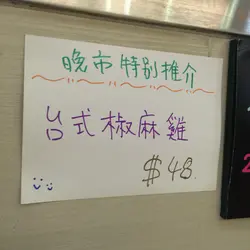 晚市特别推介
台式椒麻雞
$48